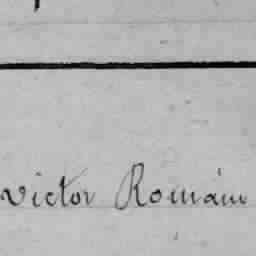 Victor Román